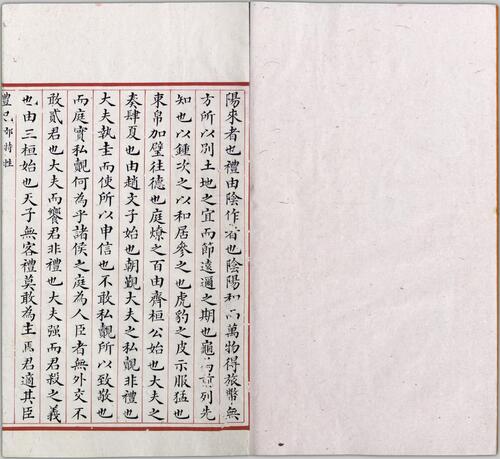 陽來者也禮由陰作者也陰陽和而萬物得旅幣無
方所以別土地之宜而節遠邇之期也龜為前列先
知也以鍾次之以和居參之也虎豹之皮示服猛也
束帛加璧往德也庭燎之百由齊桓公始也大夫之
奏肆夏也由趙文子始也朝覲大夫之私覿非禮也
大夫執圭而使所以申信也不敢私覿所以致敬也
而庭實私覿何為乎諸侯之庭為人臣者無外交不
敢貳君也大夫而饗君非禮也大夫强而君殺之義
也由三桓始也天子無客禮莫敢為主焉君適其臣
禮記郊特牲